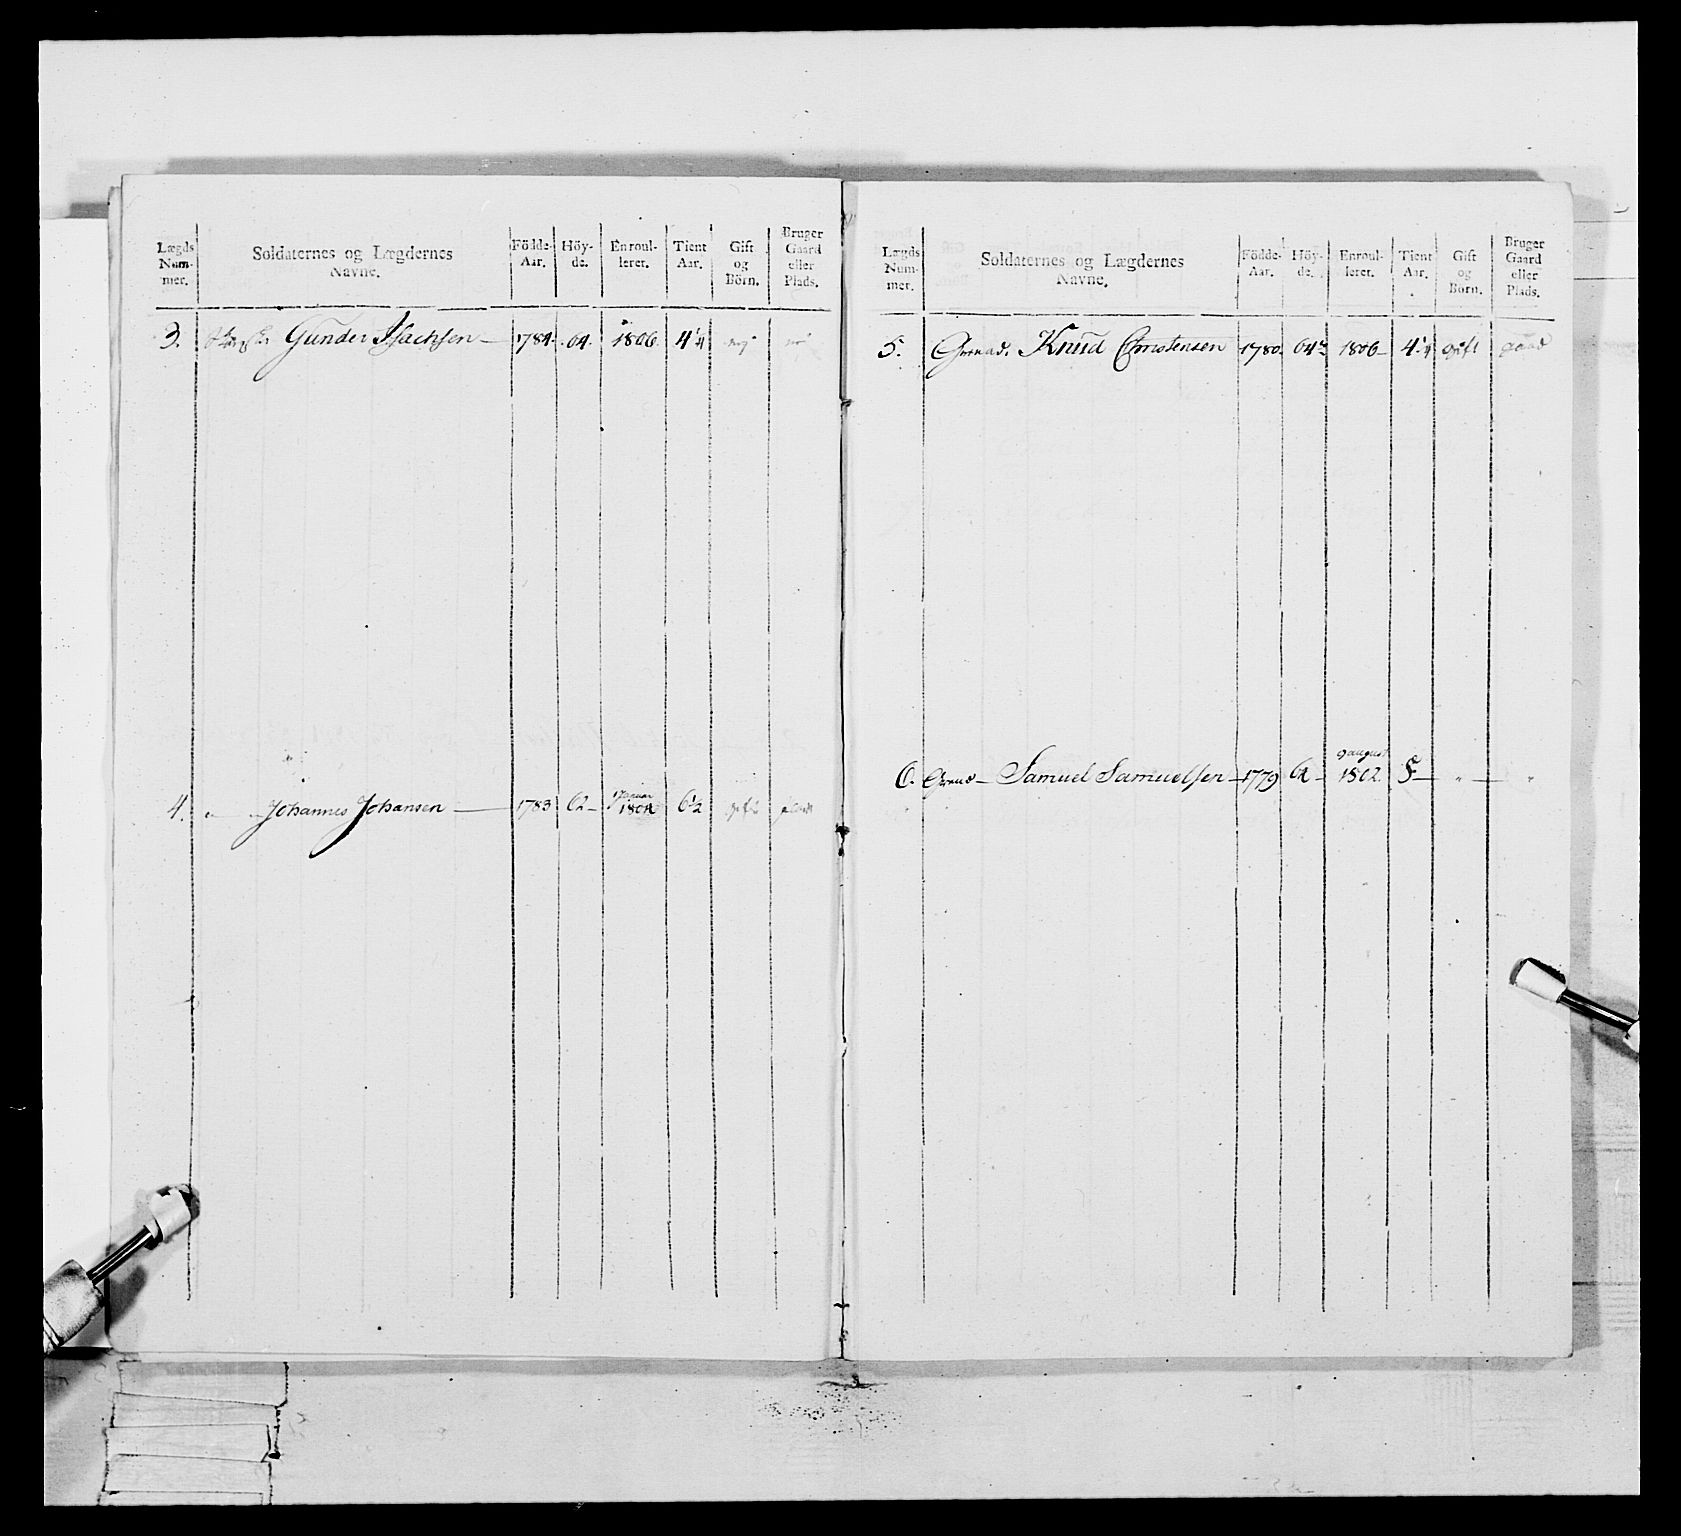 Lægds Num- mer. | Soldaternes og Lægdernes Navne. | Födde- Aar. | Höy- de. | Enroul- leret. | Tient Aar. | Gift og Börn. | Bruger Gaard eller Plads.
3. Gunder Isachsen — 1784. 64. 1806. 4 1/4 nej
1 Januar
4. " " Johannes Johansen — 1783 62 — 1804 6 1/2 gift plads
Lægds Num- mer. | Soldaternes og Lægdernes Navne. | Födde- Aar. | Höy- de. | Enroul- leret. | Tient Aar. | Gift og Börn. | Bruger Gaard eller Plads.
5. Grenad. Knud Christensen 1780. 64 1/2 1806 — 4 1/4 gift gaad
9 august
6. Grenad — Samuel Samuelsen — 1779 62 — 1802. 8 — " — "